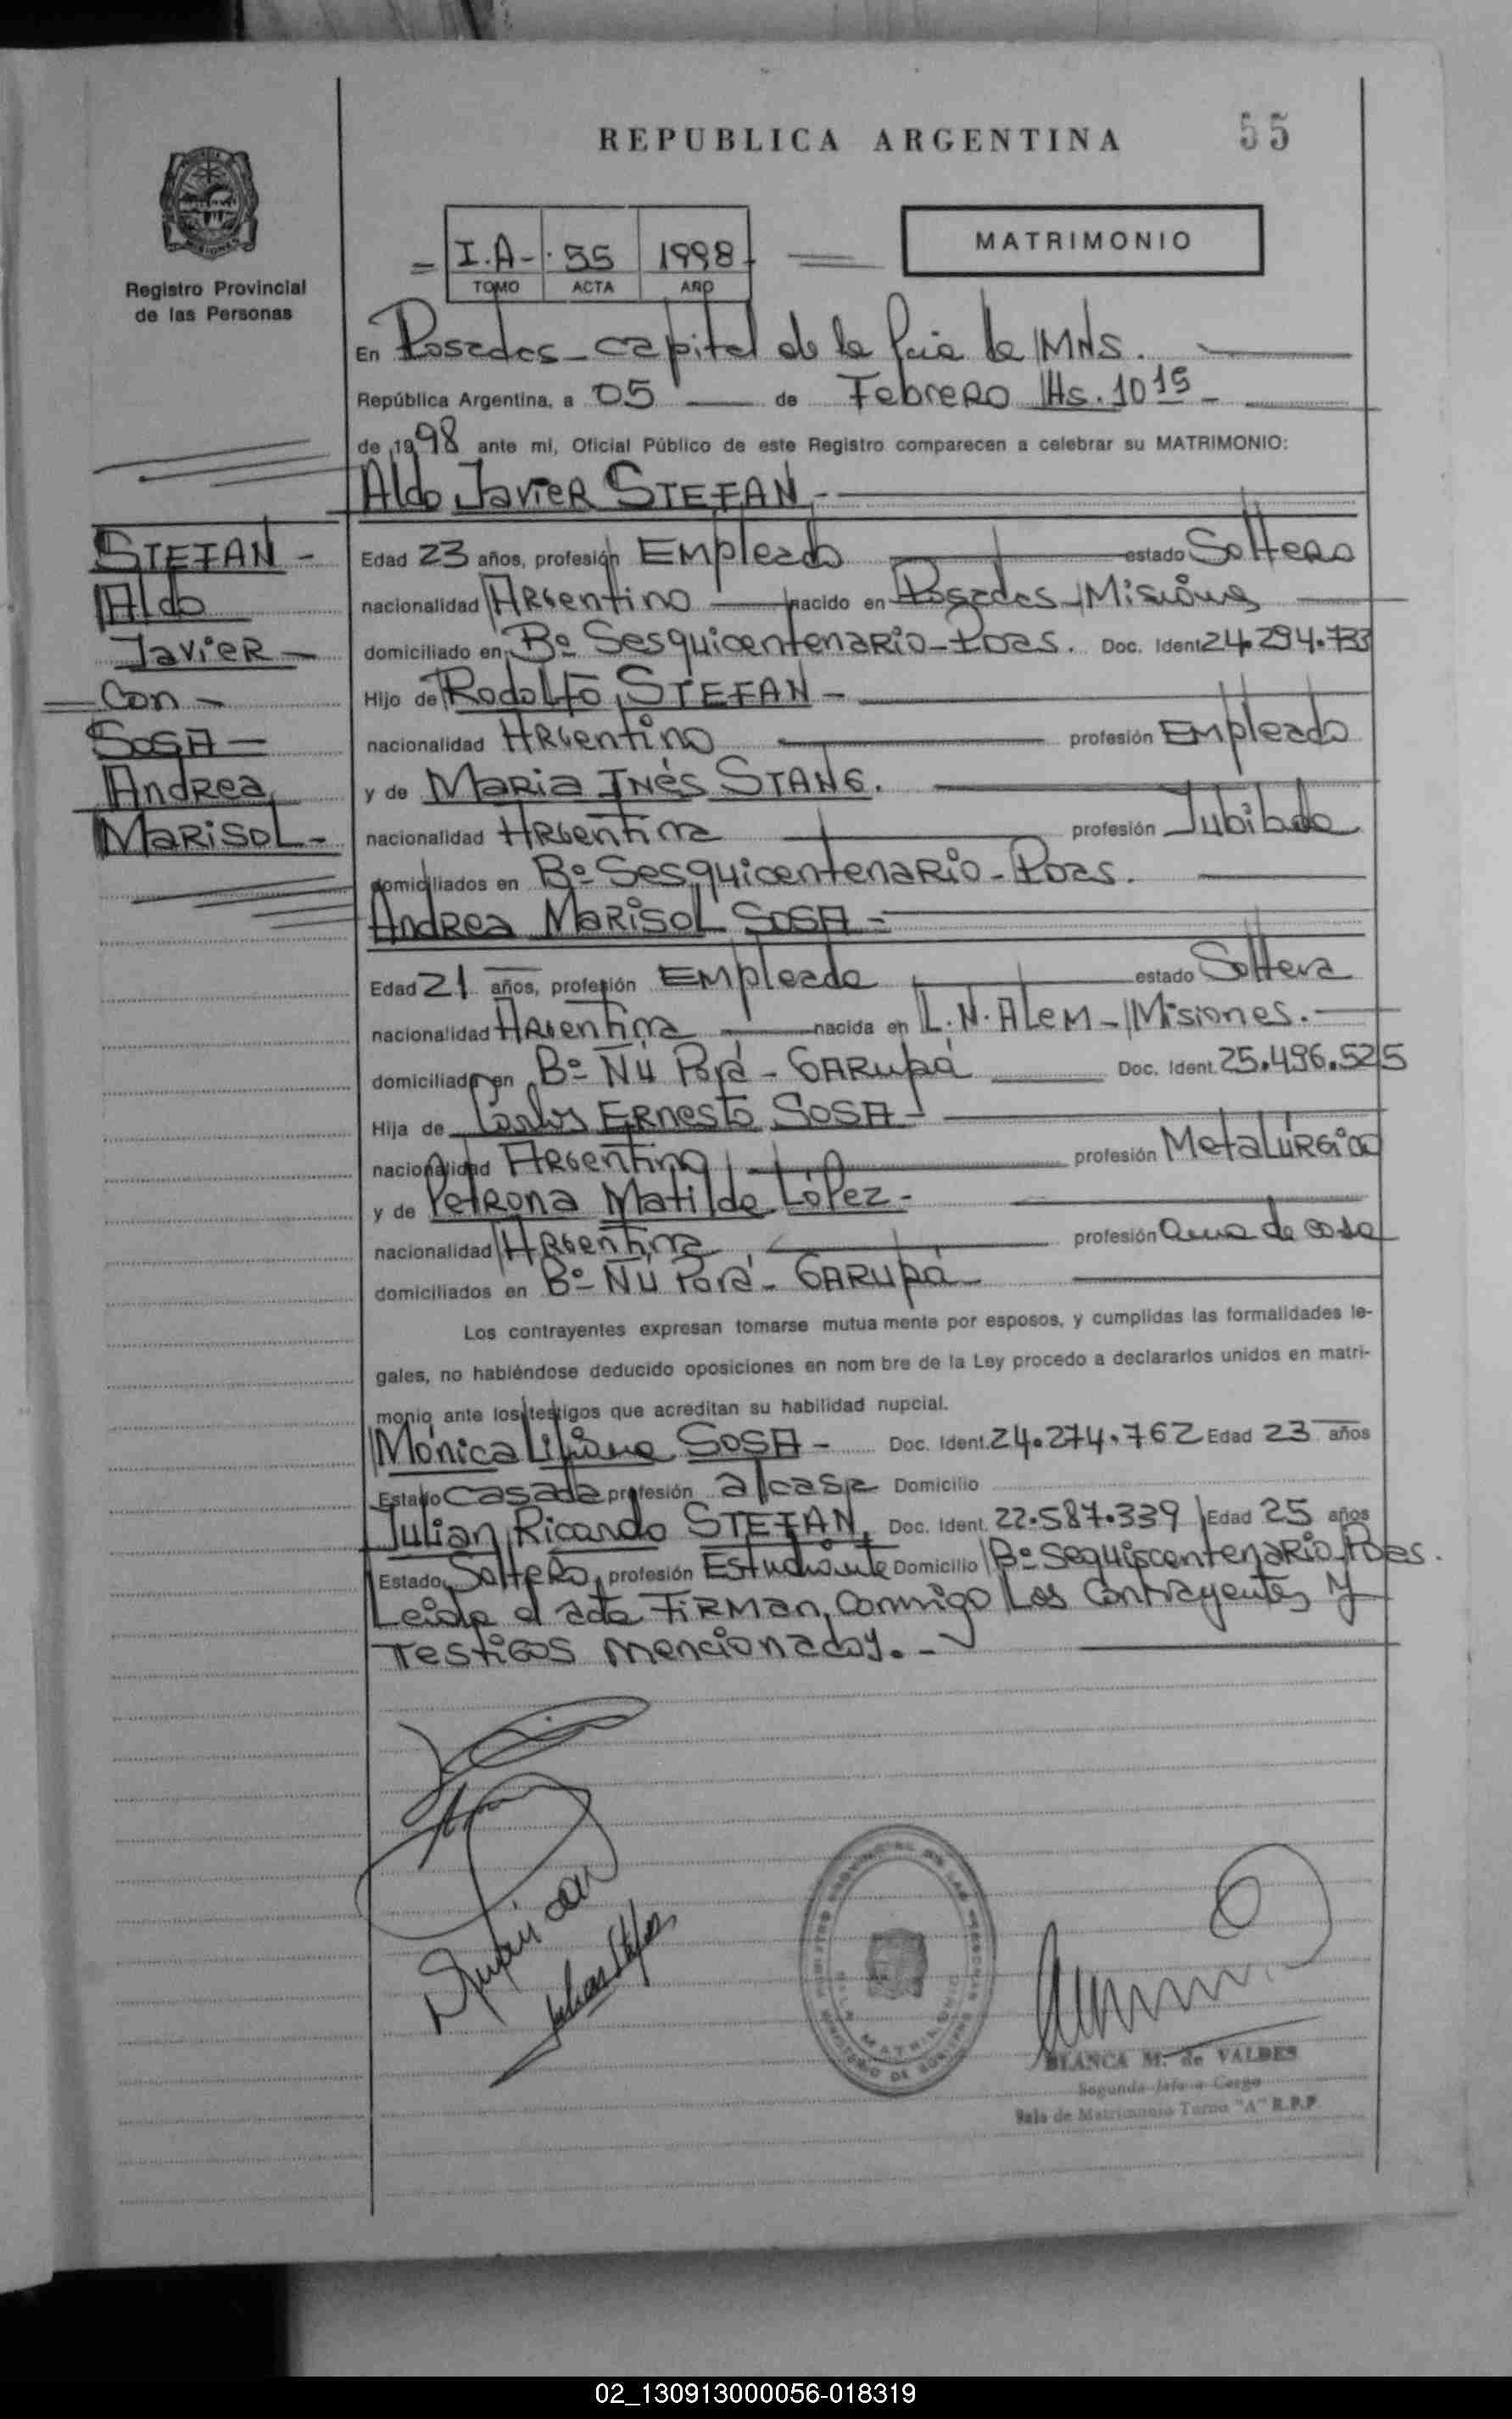 REPUBLICA ARGENTINA 55
Registro Provincial
de las Personas
I.A- 55 1998
TOMO ACTA AÑO
MATRIMONIO
En Posadas - capital de la Pcia de MNS.
República Argentina, a 05 de Febrero Hs. 10 15 -
de 1998 ante mi, Oficial Público de este Registro comparecen a celebrar su MATRIMONIO:
Aldo Javier STEFAN -
STEFAN -
Aldo
Javier -
Con -
SOSA -
Andrea
Marisol -
Edad 23 años, profesión Empleado estado Soltero
nacionalidad Argentino nacido en Posadas - Misiones
domiciliado en Bº Sesquicentenario - Pdas. Doc. Ident 24.294.733
Hijo de Rodolfo STEFAN -
nacionalidad Argentino profesión Empleado
y de Maria Inés STANG.
nacionalidad Argentina profesión Jubilada
domiciliados en Bº Sesquicentenario - Pdas.
Andrea Marisol SOSA -
Edad 21 años, profesión Empleada estado Soltera
nacionalidad Argentina nacida en L.N. Alem - Misiones. -
domiciliada en Bº Ñu Porá - Garupá Doc. Ident. 25.496.525
Hija de Carlos Ernesto SOSA -
nacionalidad Argentino profesión Metalúrgico
y de Petrona Matilde López -
nacionalidad Argentina profesión ama de casa
domiciliados en Bº Ñu Porá - Garupá -
Los contrayentes expresan tomarse mutua mente por esposos, y cumplidas las formalidades le-
gales, no habiéndose deducido oposiciones en nom bre de la Ley procedo a declararlos unidos en matri-
monio ante los testigos que acreditan su habilidad nupcial.
Mónica Liliana SOSA - Doc. Ident. 24.274.762 Edad 23 años
Estado Casada profesión a/casa Domicilio
Julian Ricardo STEFAN. Doc. Ident. 22.587.339 Edad 25 años
Estado Soltero, profesión Estudiante Domicilio Bº Sequiscentenario Pdas.
Leida el acta Firman, conmigo Los Contrayentes y
Testigos mencionados. -
Julian Stefan
REGISTRO PROVINCIAL DE LAS PERSONAS
SALA MATRIMONIO
MINISTERIO DE GOBIERNO
BLANCA M. de VALDES
Segunda Jefa a Cargo
Sala de Matrimonio Turno "A" R.P.P
02_130913000056-018319